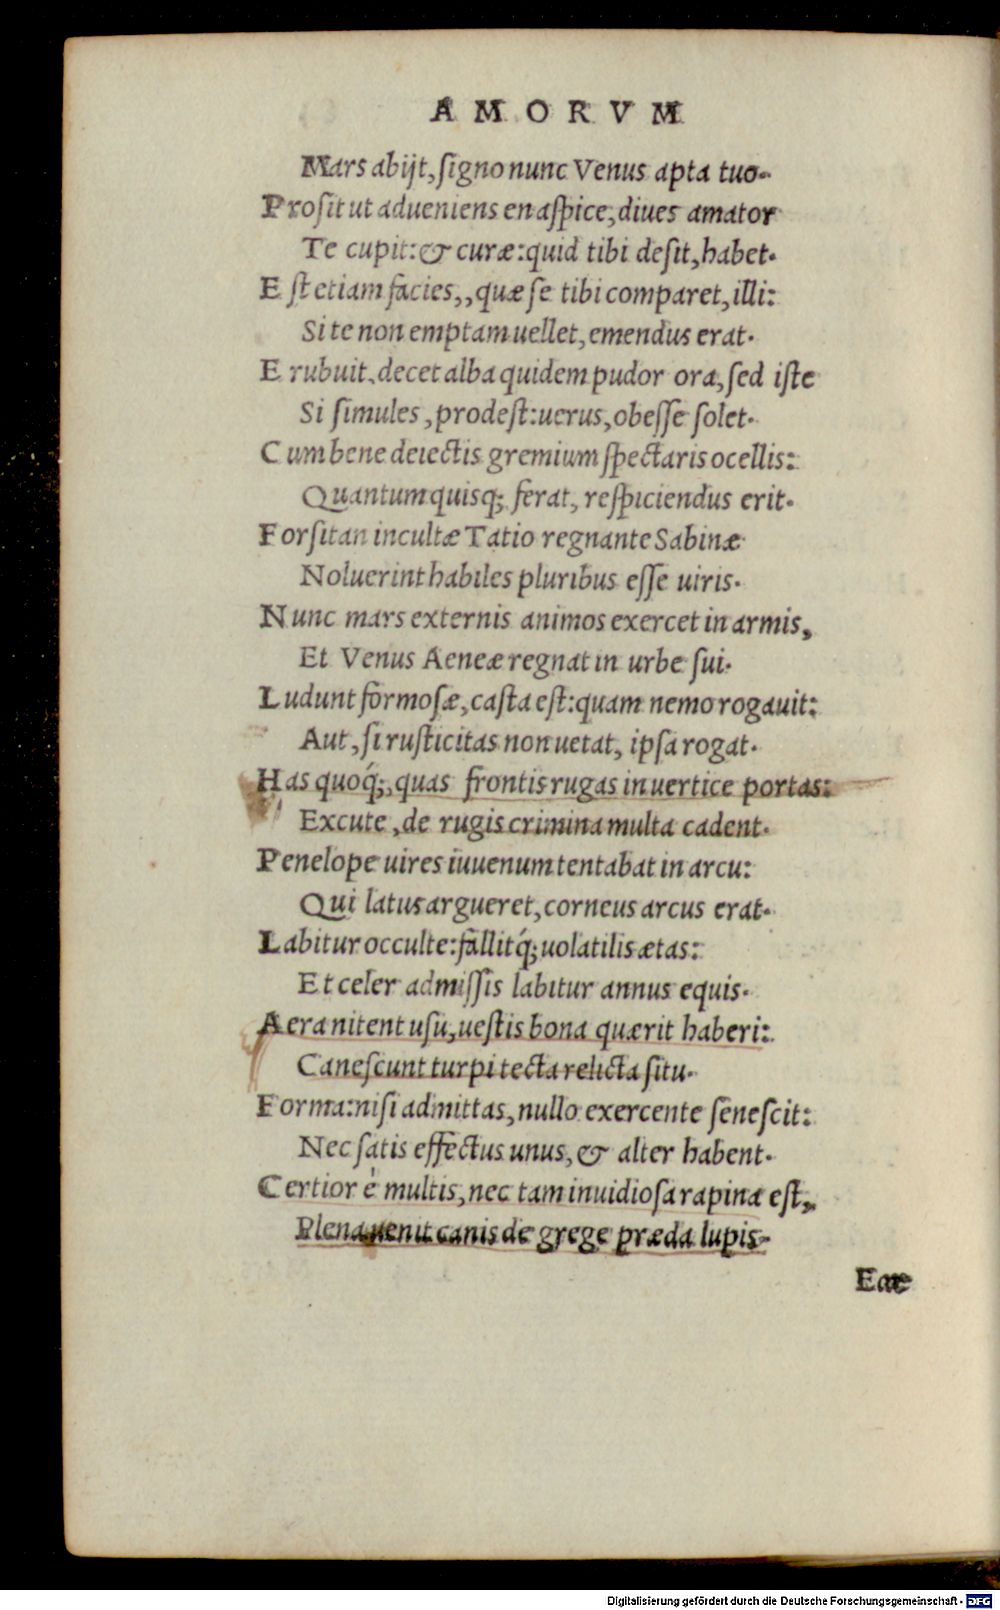 AMORVM
Mars abijt, ſigno nunc Venus apta tuo.
Proſit ut adueniens en aſpice, diues amator
Te cupit: & curæ: quid tibi deſit, habet.
Eſt etiam facies,, quæ ſe tibi comparet, illi:
Si te non emptam uellet, emendus erat.
Erubuit. decet alba quidem pudor ora, ſed iſte
Si ſimules, prodeſt: uerus, obeſſe ſolet.
Cum bene deiectis gremium ſpectaris ocellis:
Quantum quisq; ferat, reſpiciendus erit.
Forſitan incultæ Tatio regnante Sabinæ
Noluerint habiles pluribus eſſe uiris.
Nunc mars externis animos exercet in armis,
Et Venus Aeneæ regnat in urbe ſui.
Ludunt formoſæ, caſta eſt: quam nemo rogauit:
Aut, ſi ruſticitas non uetat, ipſa rogat.
Has quoq́;, quas frontis rugas in uertice portas:
Excute, de rugis crimina multa cadent.
Penelope uires iuuenum tentabat in arcu:
Qui latus argueret, corneus arcus erat.
Labitur occulte: fallitq́; uolatilis ætas:
Et celer admiſſis labitur annus equis.
Aera nitent uſu, ueſtis bona quærit haberi:
Caneſcunt turpi tecta relicta ſitu.
Forma: niſi admittas, nullo exercente ſeneſcit:
Nec ſatis effectus unus, & alter habent.
Certior è multis, nec tam inuidioſa rapina eſt,
Plena uenit canis de grege præda lupis.
Ecce
Digitalisierung gefördert durch die Deutsche Forschungsgemeinschaft - DFG